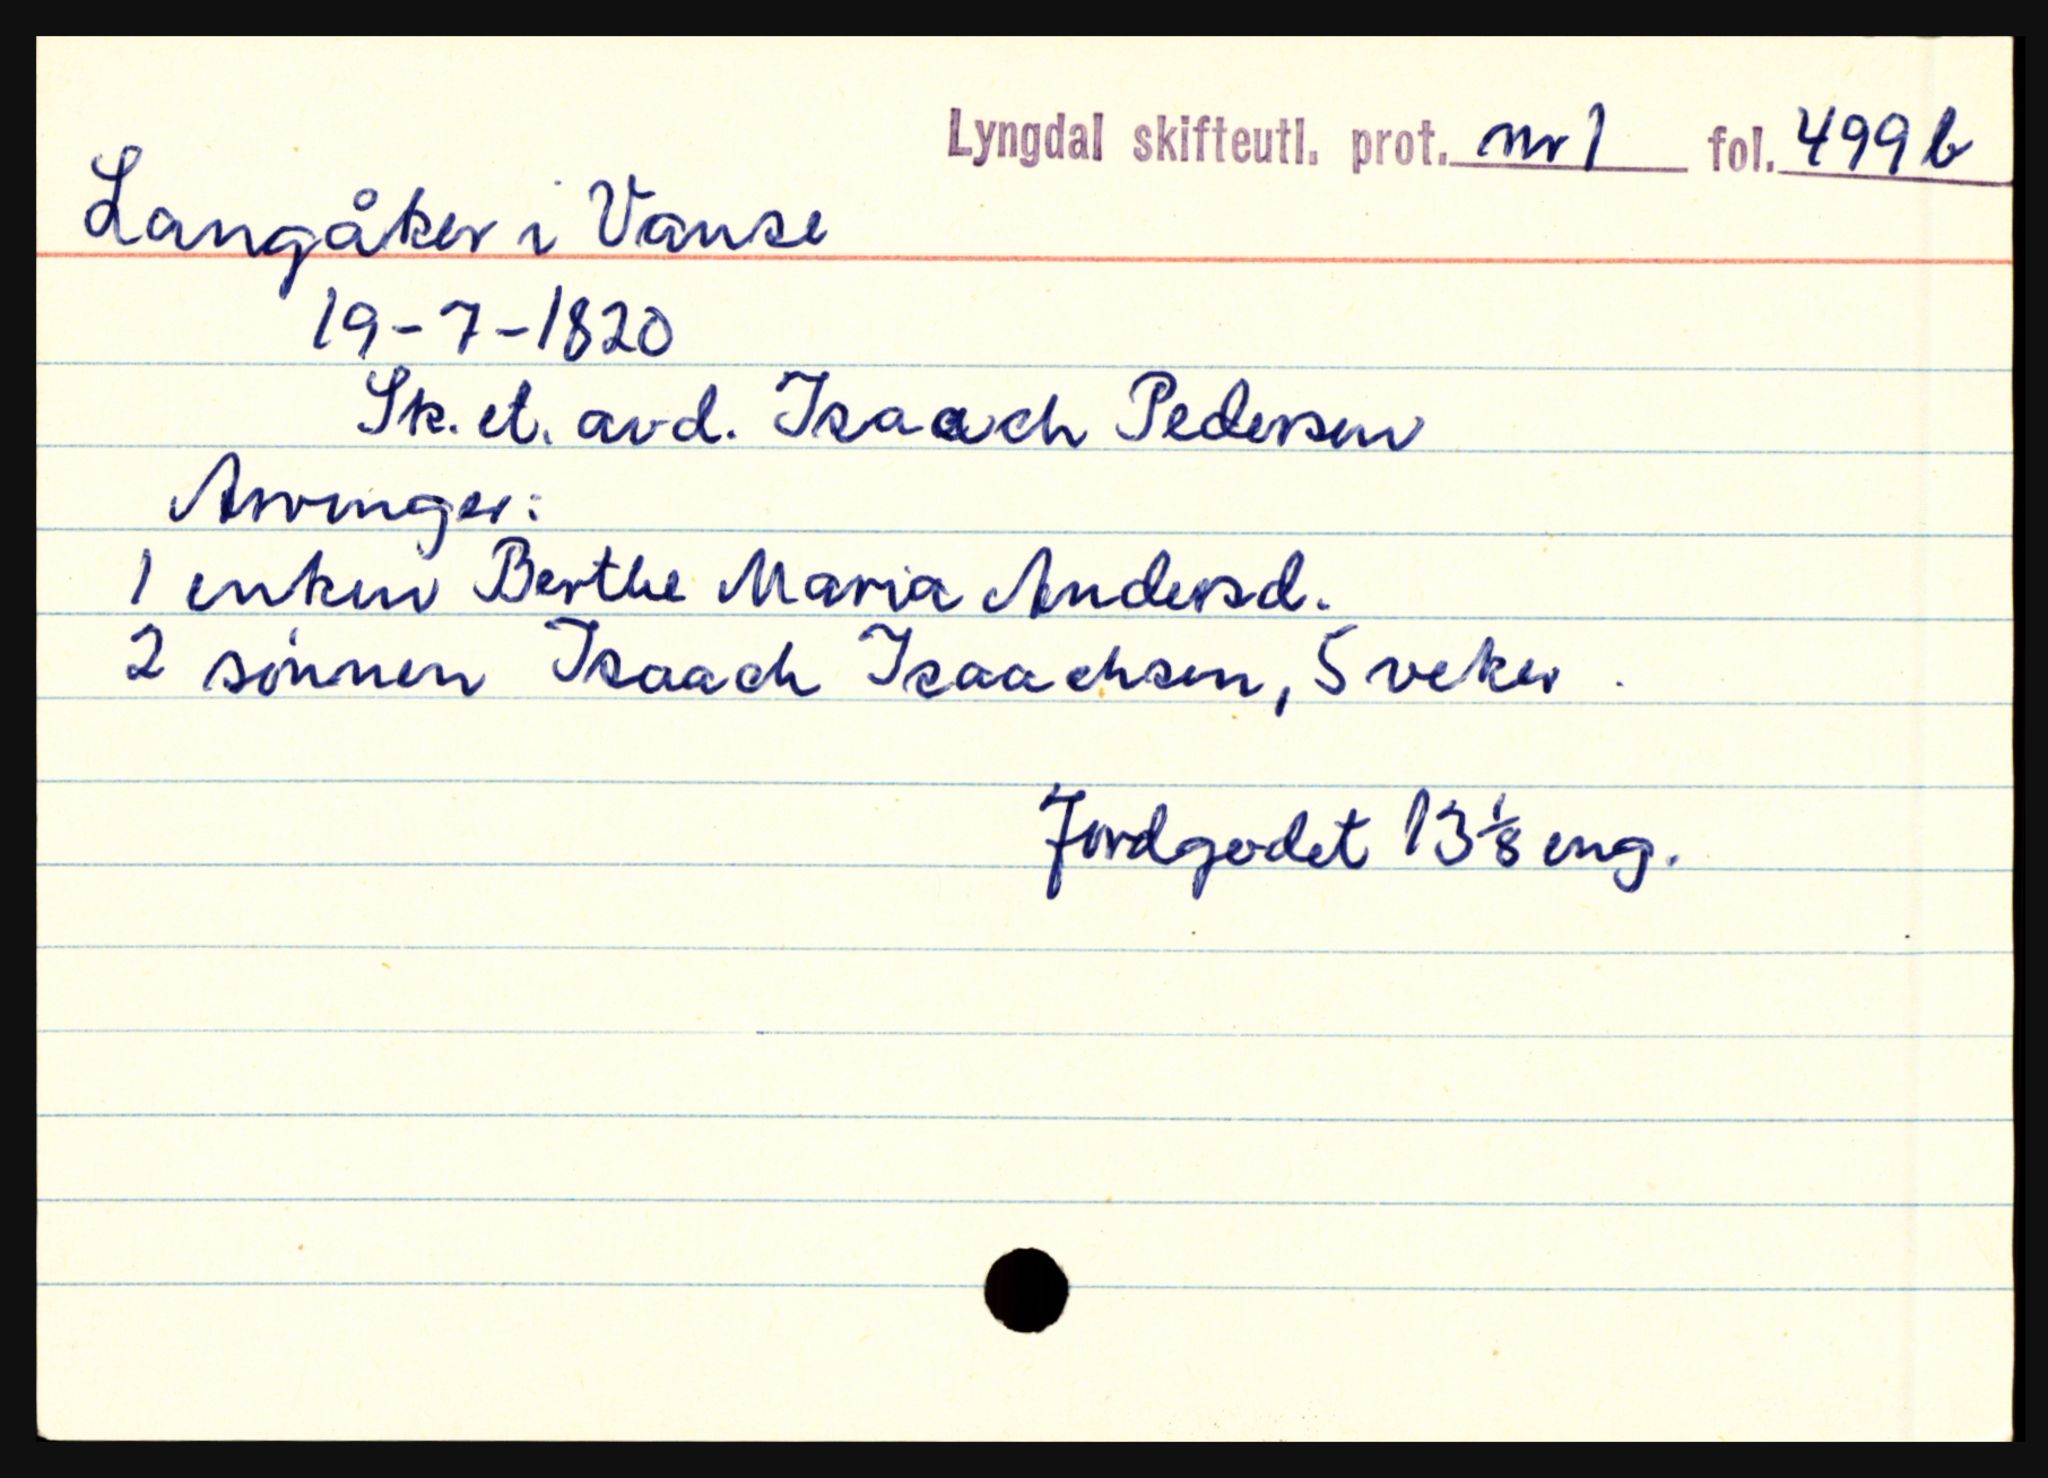 Lyngdal skifteutl. prot. nr 1 fol. 499b
Langåker i Vanse
19-7-1820
Sk. et. avd. Isaach Pedersen
Arvinger:
1 enken Berthe Maria Andersd.
2 sönnen Isaach Isaachsen, 5 veker.
Jordgodet 13 1/8 eng.